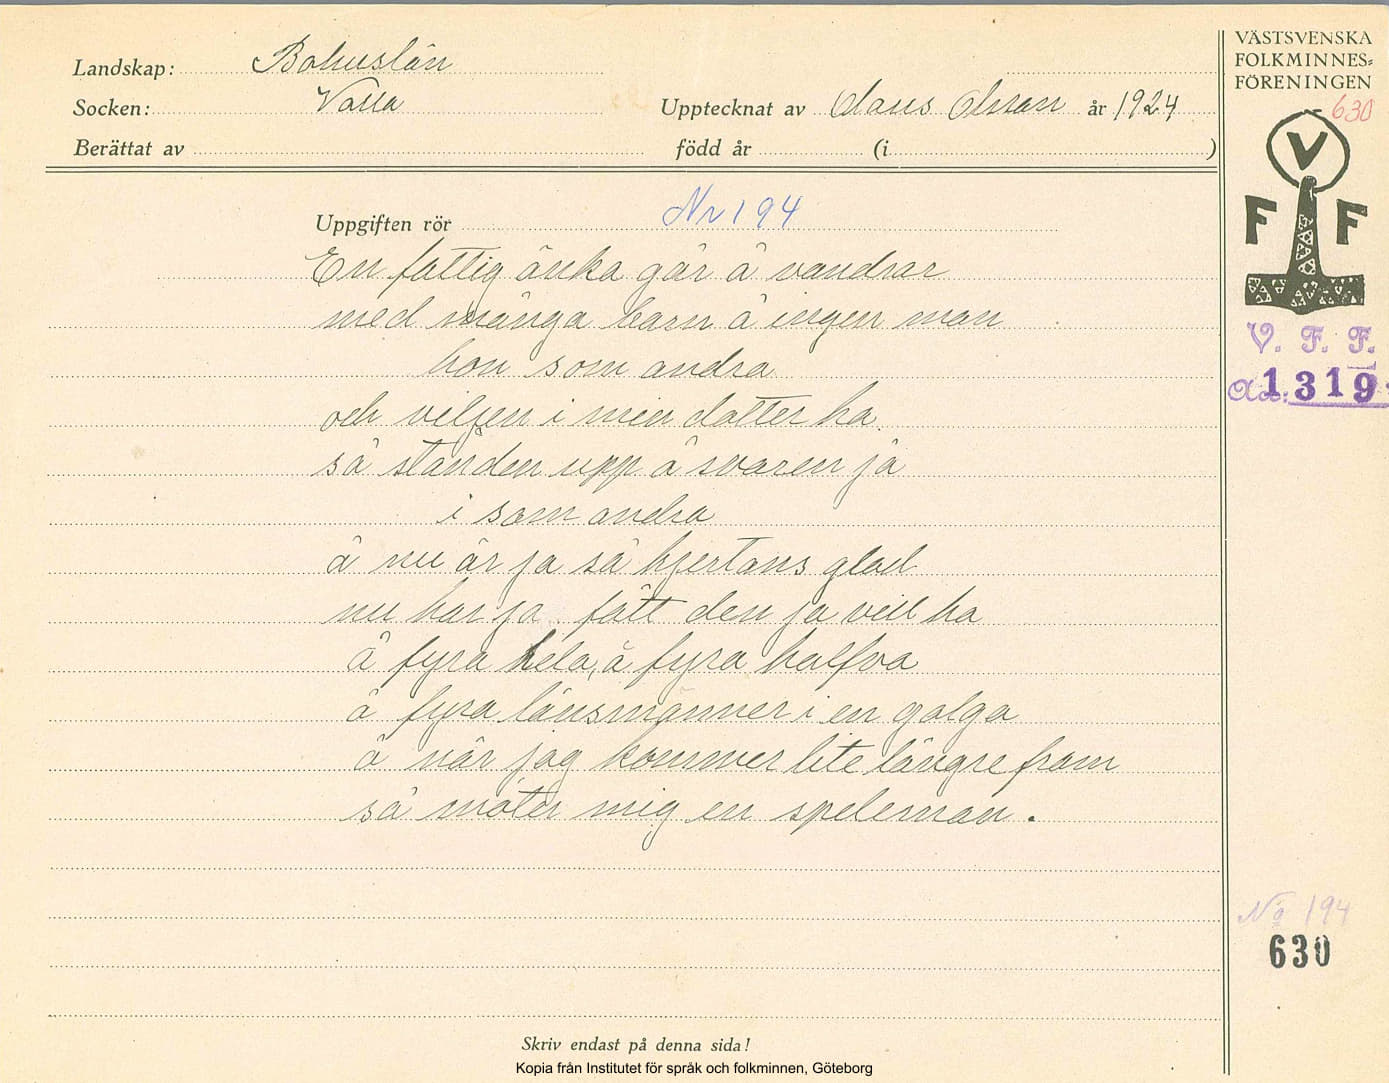 Landskap: Bohuslän
Socken: Valla
Upptecknat av Claus Olsson år 1924
Berättat av
född år (i )
VÄSTSVENSKA
FOLKMINNES=
FÖRENINGEN
630
V
F F
V. F. F.
1319
Uppgiften rör Nr 194
En fattig änka går å vandrar
med många barn å ingen man
hon som andra
och viljen i min dotter ha
så standen upp å svaren ja
i som andra
å nu är ja så hjertans glad
nu har ja fått den ja vill ha
å fyra hela, å fyra halfva
å fyra länsmänner i en galga
å när jag kommer lite längre fram
så möter mig en speleman.
No 194
630
Skriv endast på denna sida!
Kopia från Institutet för språk och folkminnen, Göteborg